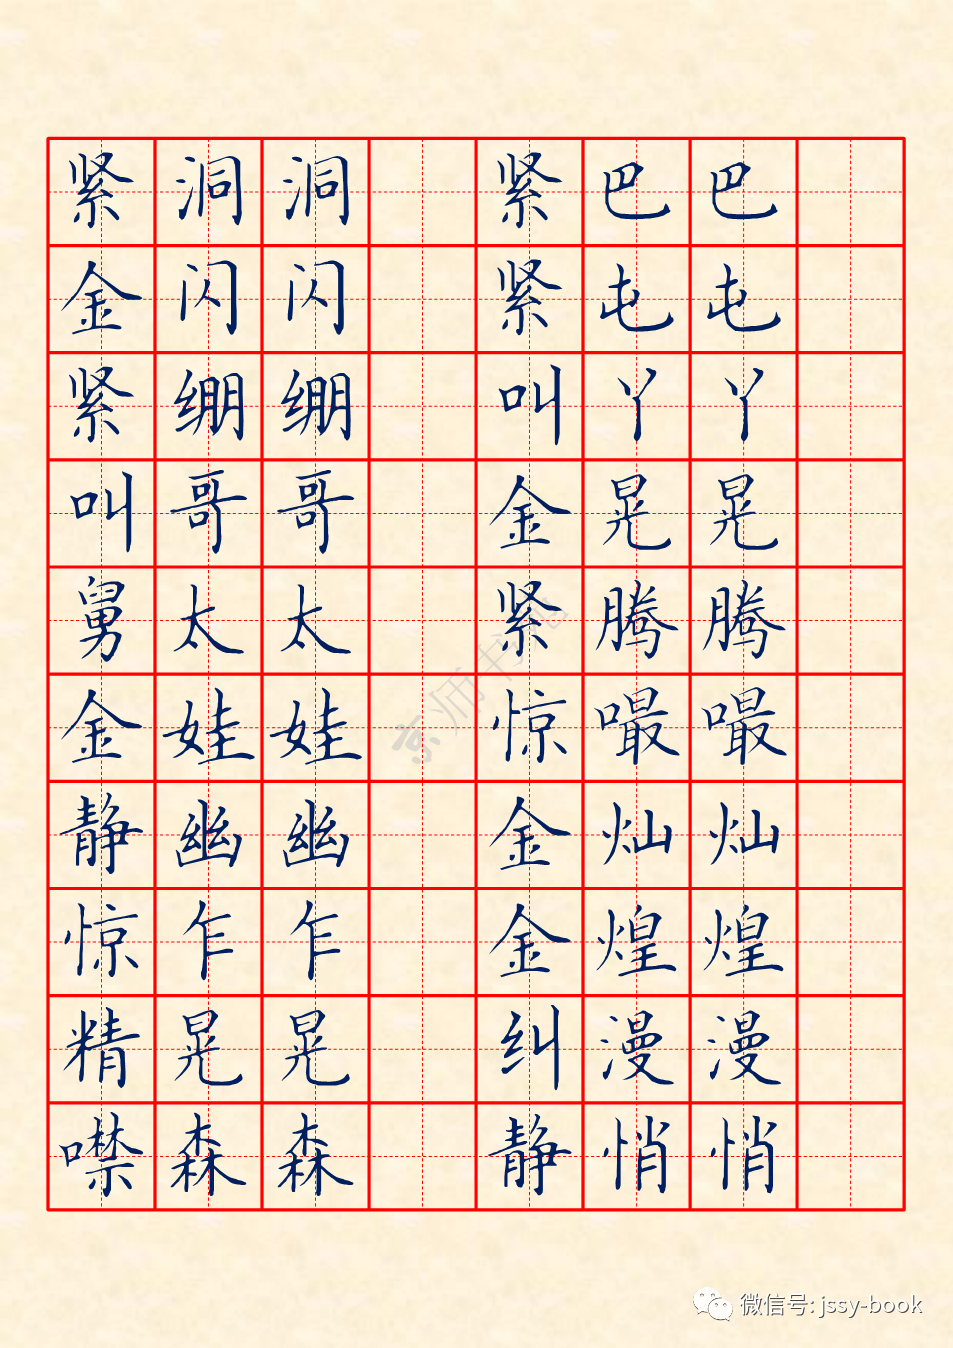 紧洞洞 紧巴巴
金闪闪 紧屯屯
紧绷绷 叫丫丫
叫哥哥 金晃晃
舅太太 紧腾腾
金娃娃 惊嘬嘬
静幽幽 金灿灿
惊乍乍 金煌煌
精晃晃 纠漫漫
噤森森 静悄悄
京师书苑
微信号: jssy-book